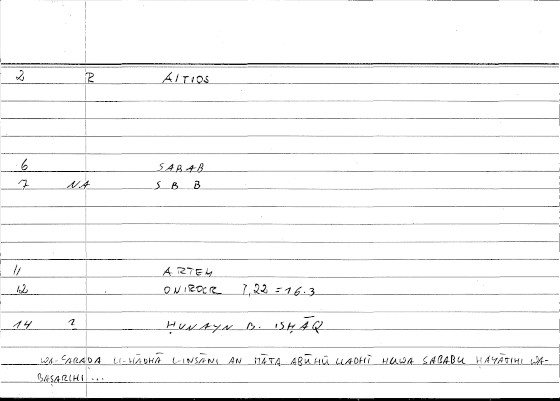 2 R AITIOS
6 SABAB
7 NA S B B
11 ARTEM
12 ONIROCR 7,22 = 16.3
14 ? ḤUNAYN B. ISḤĀQ
LI-HĀDHĀ L-INSĀNI AN MĀTA ABŪHŪ LLADHĪ HUWA SABABU ḤAYĀTIHI WA-
BAṢARIHI ...